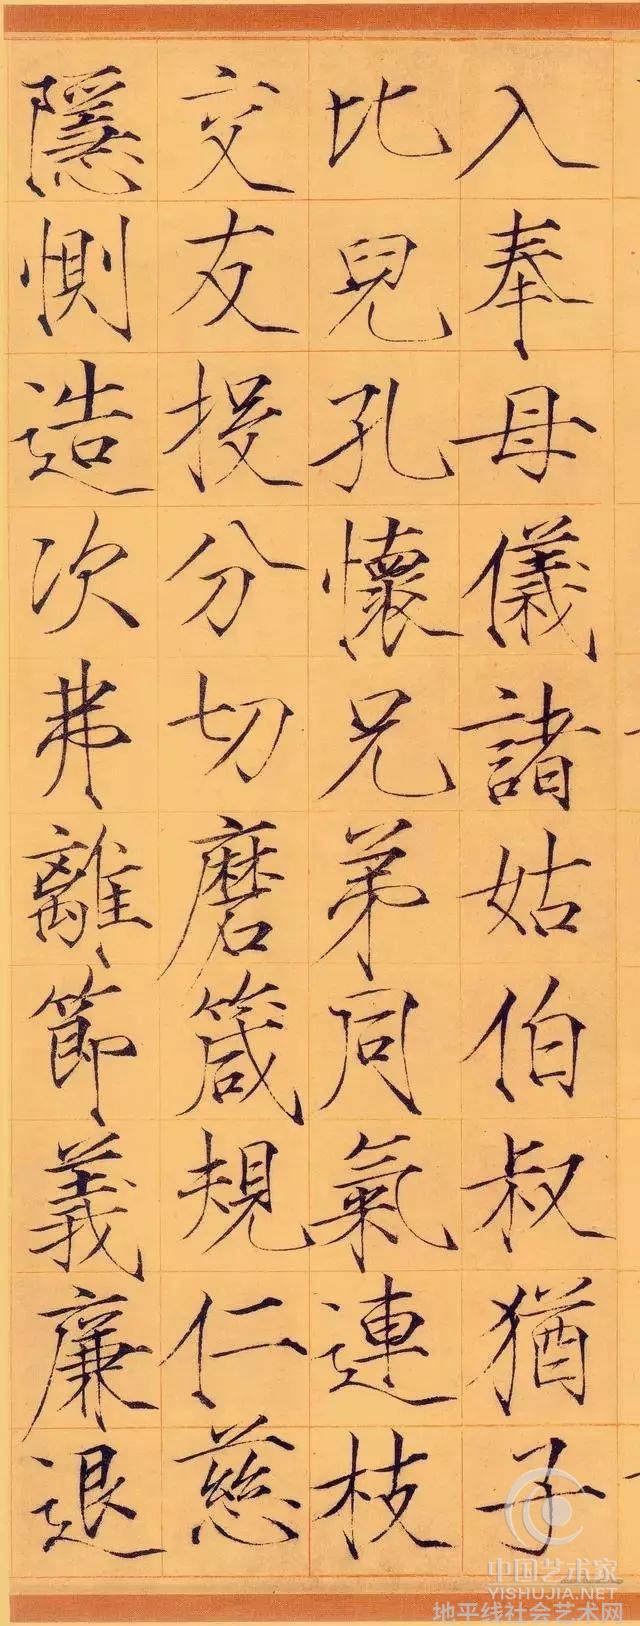 入奉母儀諸姑伯叔猶子
比兒孔懷兄弟同氣連枝
交友投分切磨箴規仁慈
隱惻造次弗離節義廉退
中国艺术家
YISHUJIA.NET
地平线社会艺术网